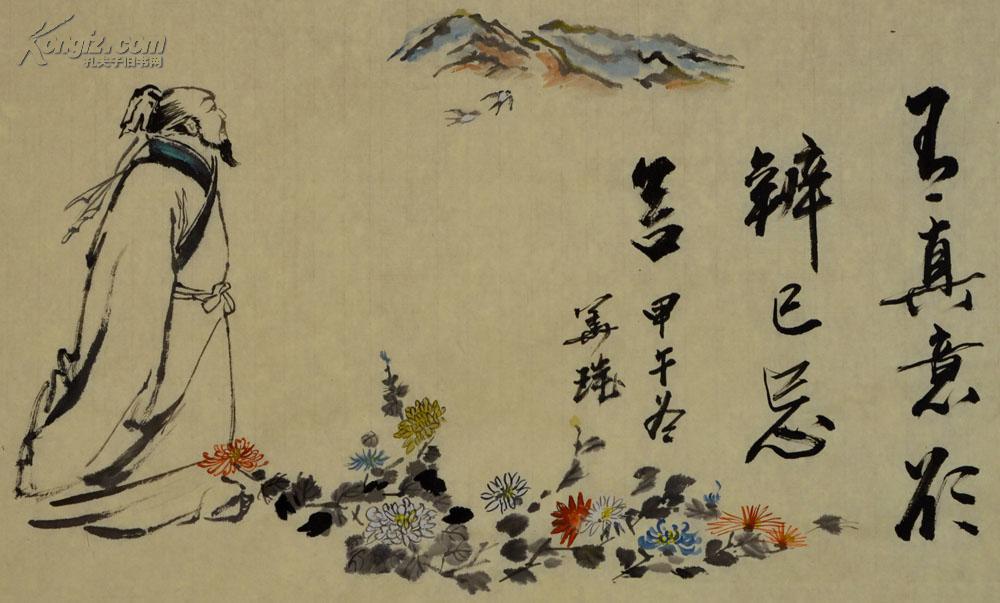 有真意欲
辨已忘
言
甲午冬
Kongfz.com
孔夫子旧书网